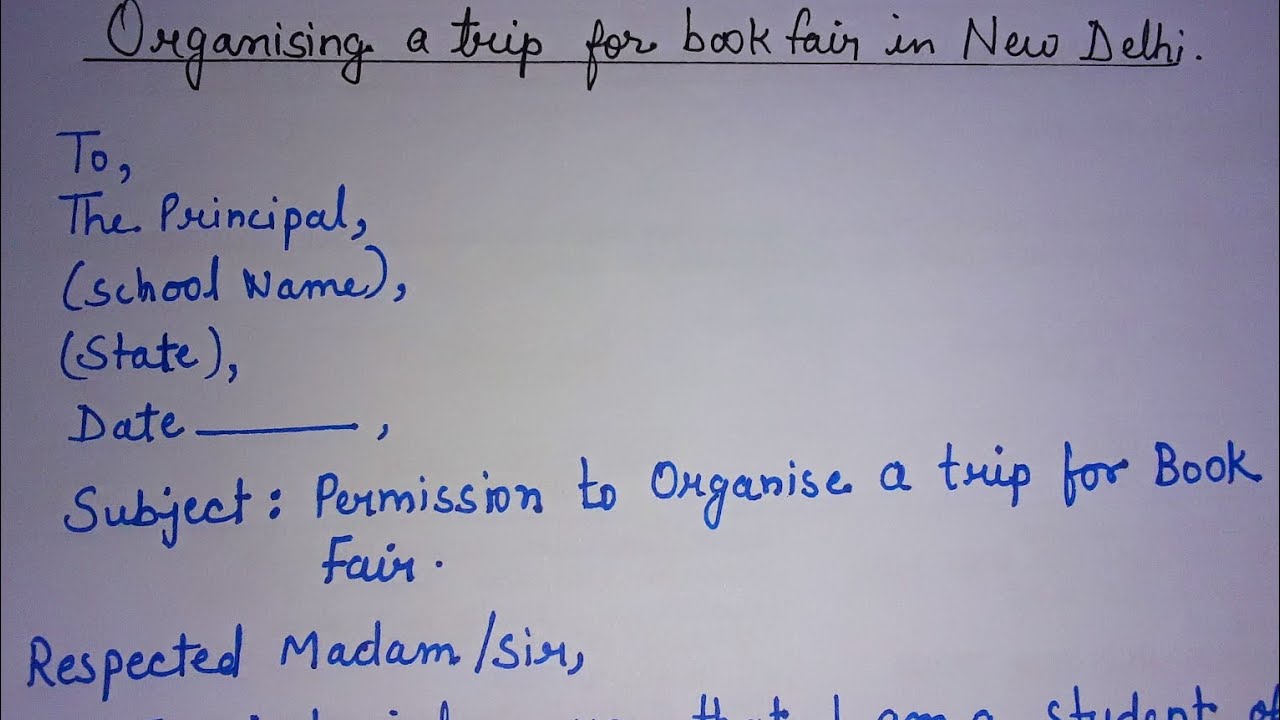 Organising a trip for book fair in New Delhi.
To,
The Principal,
(School Name),
(State),
Date ______ ,
Subject: Permission to Organise a trip for Book
Fair.
Respected Madam/Sir,
that I am a student of